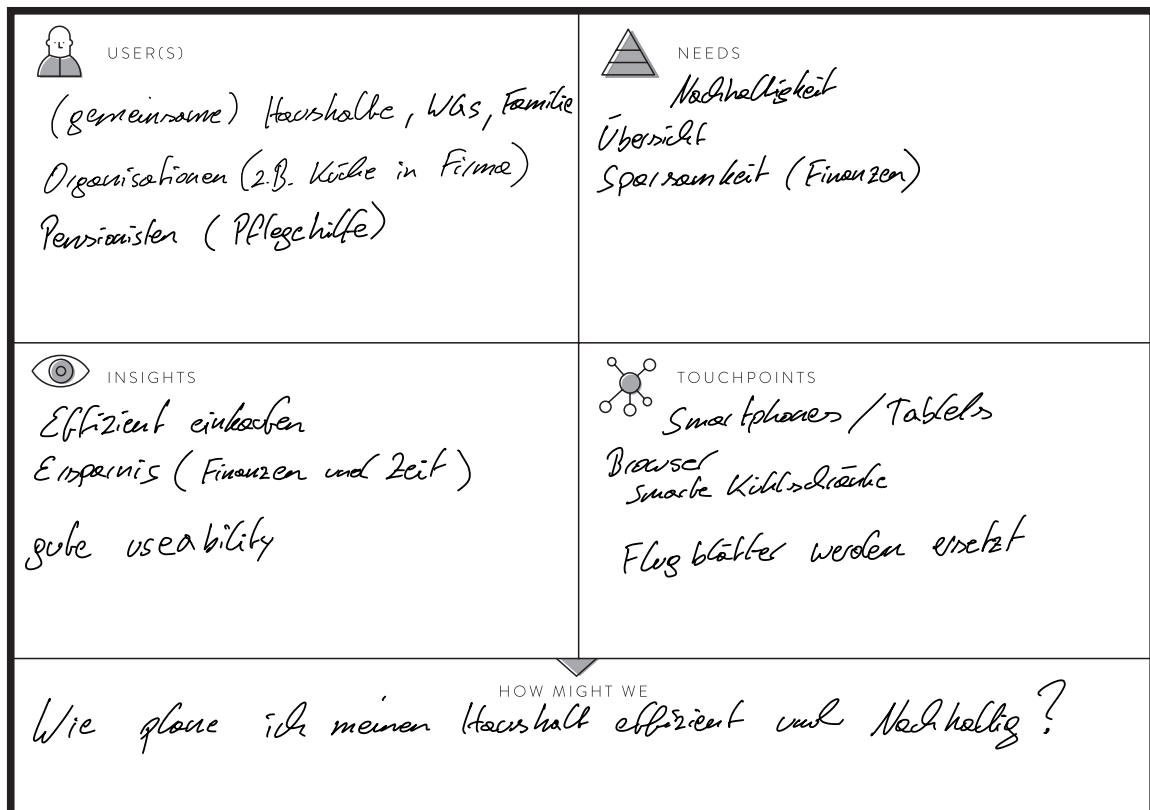 USER(S)
(gemeinsame) Haushalte, WGs, Familie
Organisationen (z.B. Küche in Firma)
Pensionisten (Pflegehilfe)
NEEDS
Nachhaltigkeit
Übersicht
Sparsamkeit (Finanzen)
INSIGHTS
Effizient einkaufen
Ersparnis (Finanzen und Zeit)
gute useability
TOUCHPOINTS
Smartphones / Tablets
Browser
Smarte Kühlschränke
Flugblätter werden ersetzt
HOW MIGHT WE
Wie plane ich meinen Haushalt effizient und Nachhaltig?